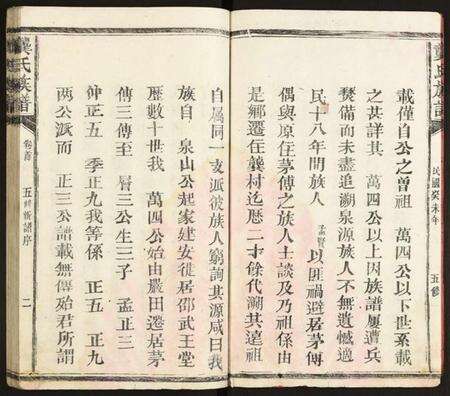 龔氏族譜
民國癸未年
五修
載僅自公之曾祖 萬四公以下世系載
之甚詳其 萬四公以上因族譜屢遭兵
燹僃而未盡追溯泉源族人不無遺憾適
民十八年間族人 孟賢 以匪禍避居茅傅
偶與原住茅傅之族人士談及乃祖係由
是鄉遷在龔村迄歷二才餘代溯其遠祖
自屬同一支派彼族人窮詢其源咸曰我
族自 泉山公起家建安徙居邵武王堂
歷數十世我 萬四公始由嚴田遷居茅
傅三傳至 層三公生三子 孟正三
仲正五 季正九我等係 正五 正九
兩公派而 正三公譜載無傳殆君所謂
龔氏族譜
卷首
五修新譜序
二